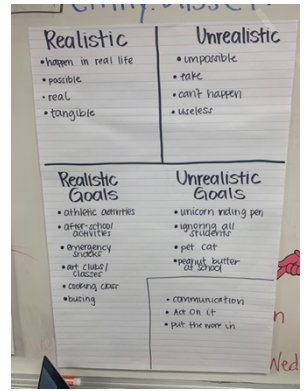 Realistic
• happen in real life
• possible
• real
• tangible
Unrealistic
• unpossible
• fake
• can't happen
• useless
Realistic
Goals
• athletic activities
• after-school
activities
• emergency
snacks
• art clubs/
classes
• cooking class
• busing
Unrealistic
Goals
• unicorn riding pen
• ignoring all
students
• pet cat
• peanut butter
at school
• communication
• Act On it
• put the work in